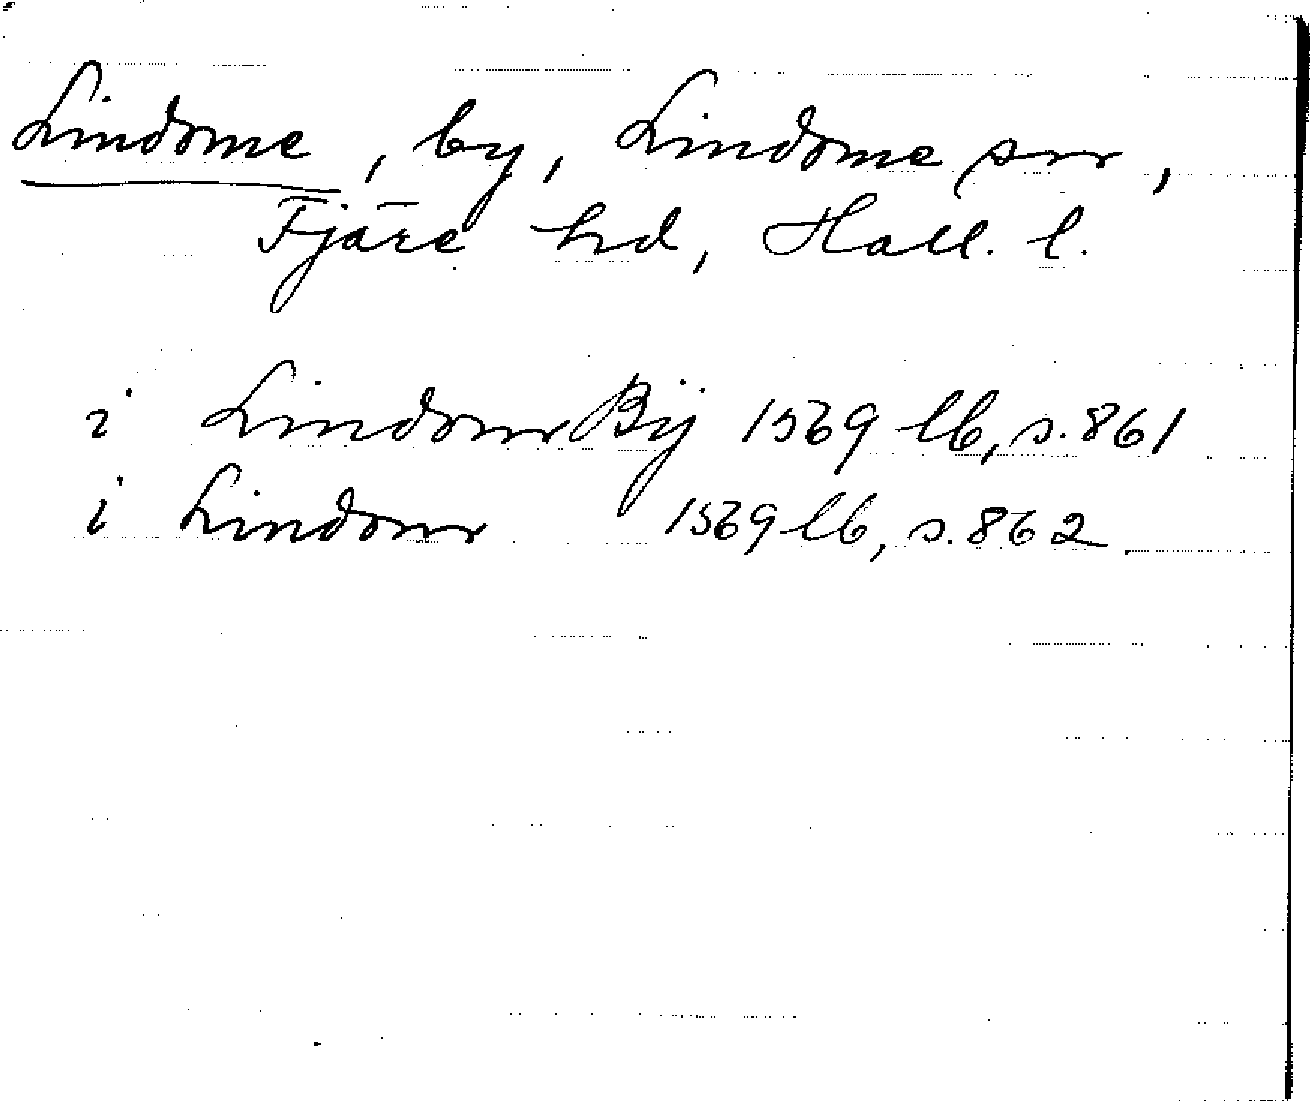 Lindome, by, Lindome snr,
Fjäre hd, Hall. l.
i Lindomr Bÿ 1569 lb, s. 861
i Lindomr 1569 lb, s. 862